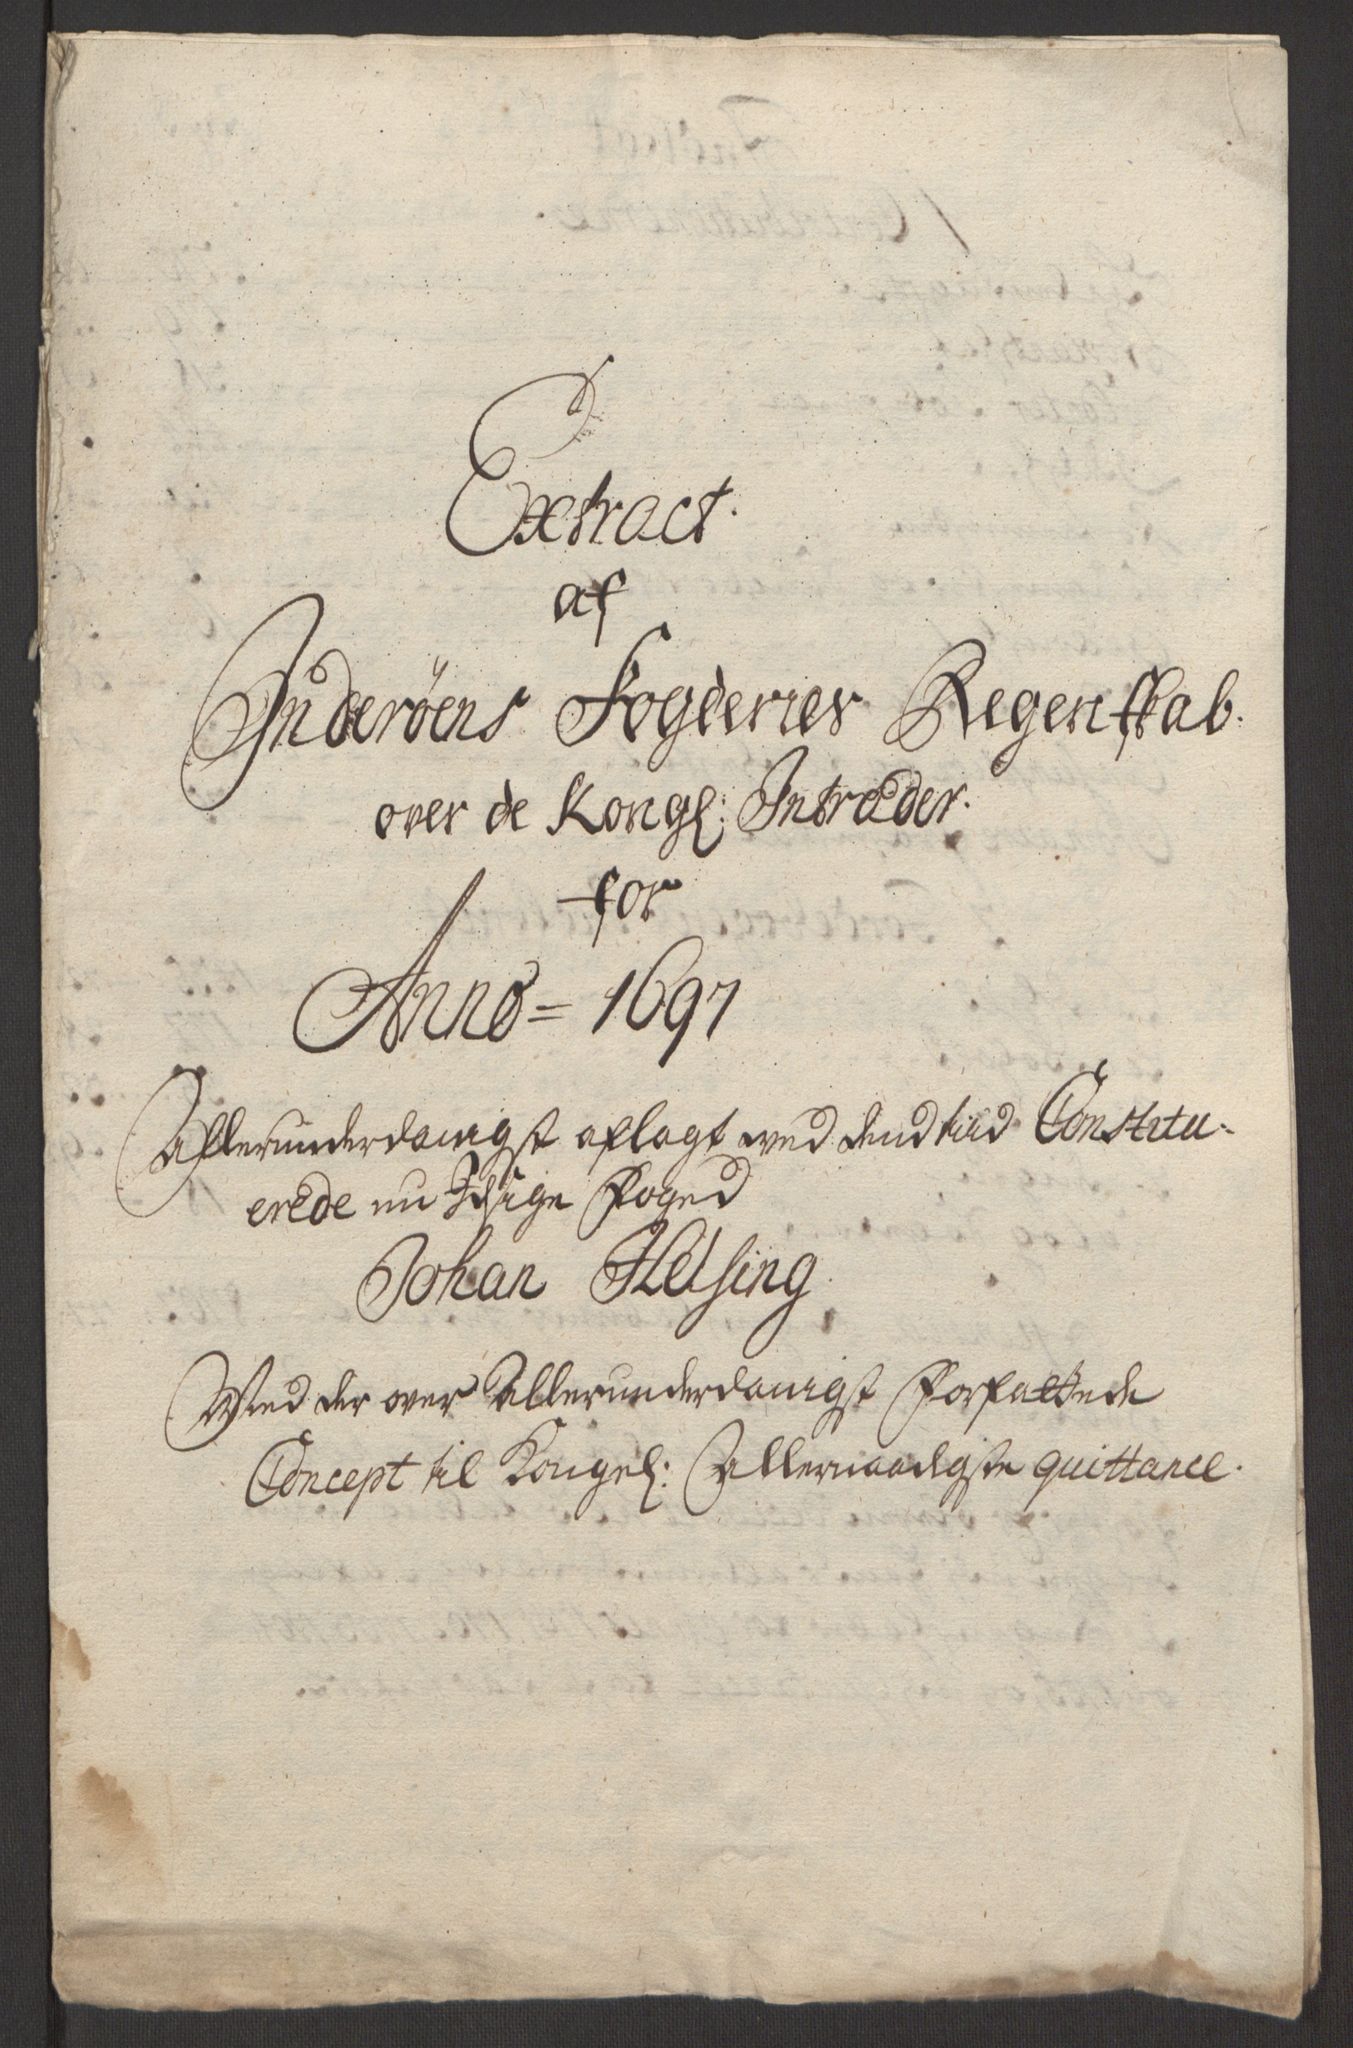 Extract.
af
Inderöens Fogderies Regenskab.
over de Kongl: Intrader.
for
Anno = 1697
Allerunderdanigst aflagt wed dend tiid Constitu-
erede nu Foged
Johan Helsing.
Med der over Allerunderdanigst Forfattede
Concept til Kongel: Allernaadigste quittance.